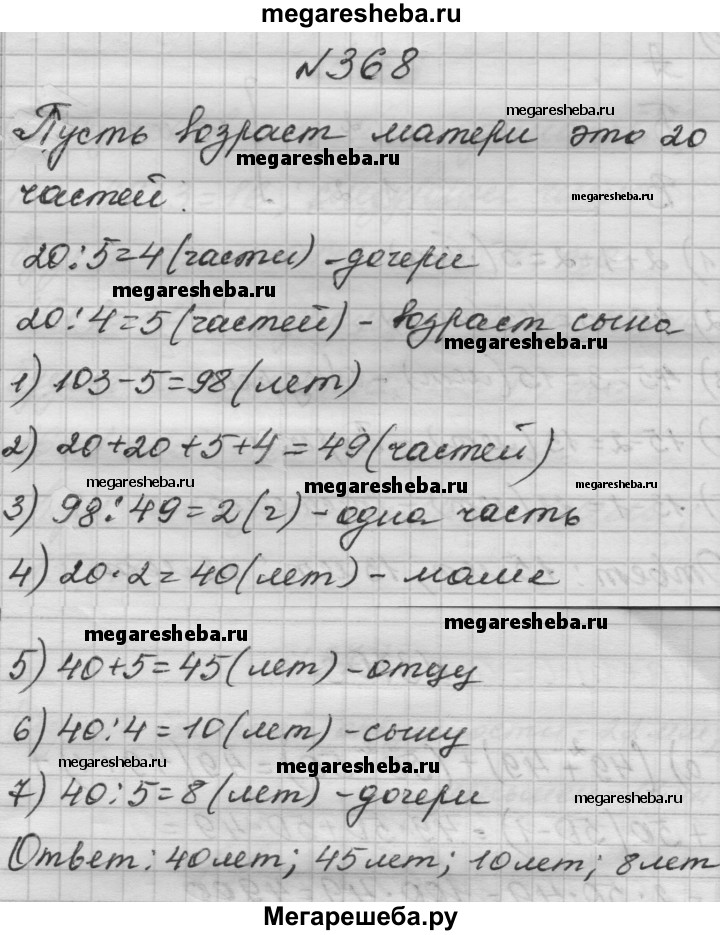 megaresheba.ru
№368
megaresheba.ru
Пусть возраст матери это 20
megaresheba.ru
частей:
megaresheba.ru
20:5=4(части)-дочери
megaresheba.ru
20:4=5(частей)- возраст сына
megaresheba.ru
1) 103-5=98(лет)
2) 20+20+5+4=49(частей)
megaresheba.ru
megaresheba.ru
megaresheba.ru
3) 98:49=2(г)-одна часть
4) 20·2=40(лет)-маме
megaresheba.ru
megaresheba.ru
5) 40+5=45(лет)-отцу
6) 40:4=10(лет)-сыну
megaresheba.ru
megaresheba.ru
7) 40:5=8(лет)-дочери
megaresheba.ru
Ответ: 40лет; 45лет; 10лет; 8лет
Мегарешеба.ру